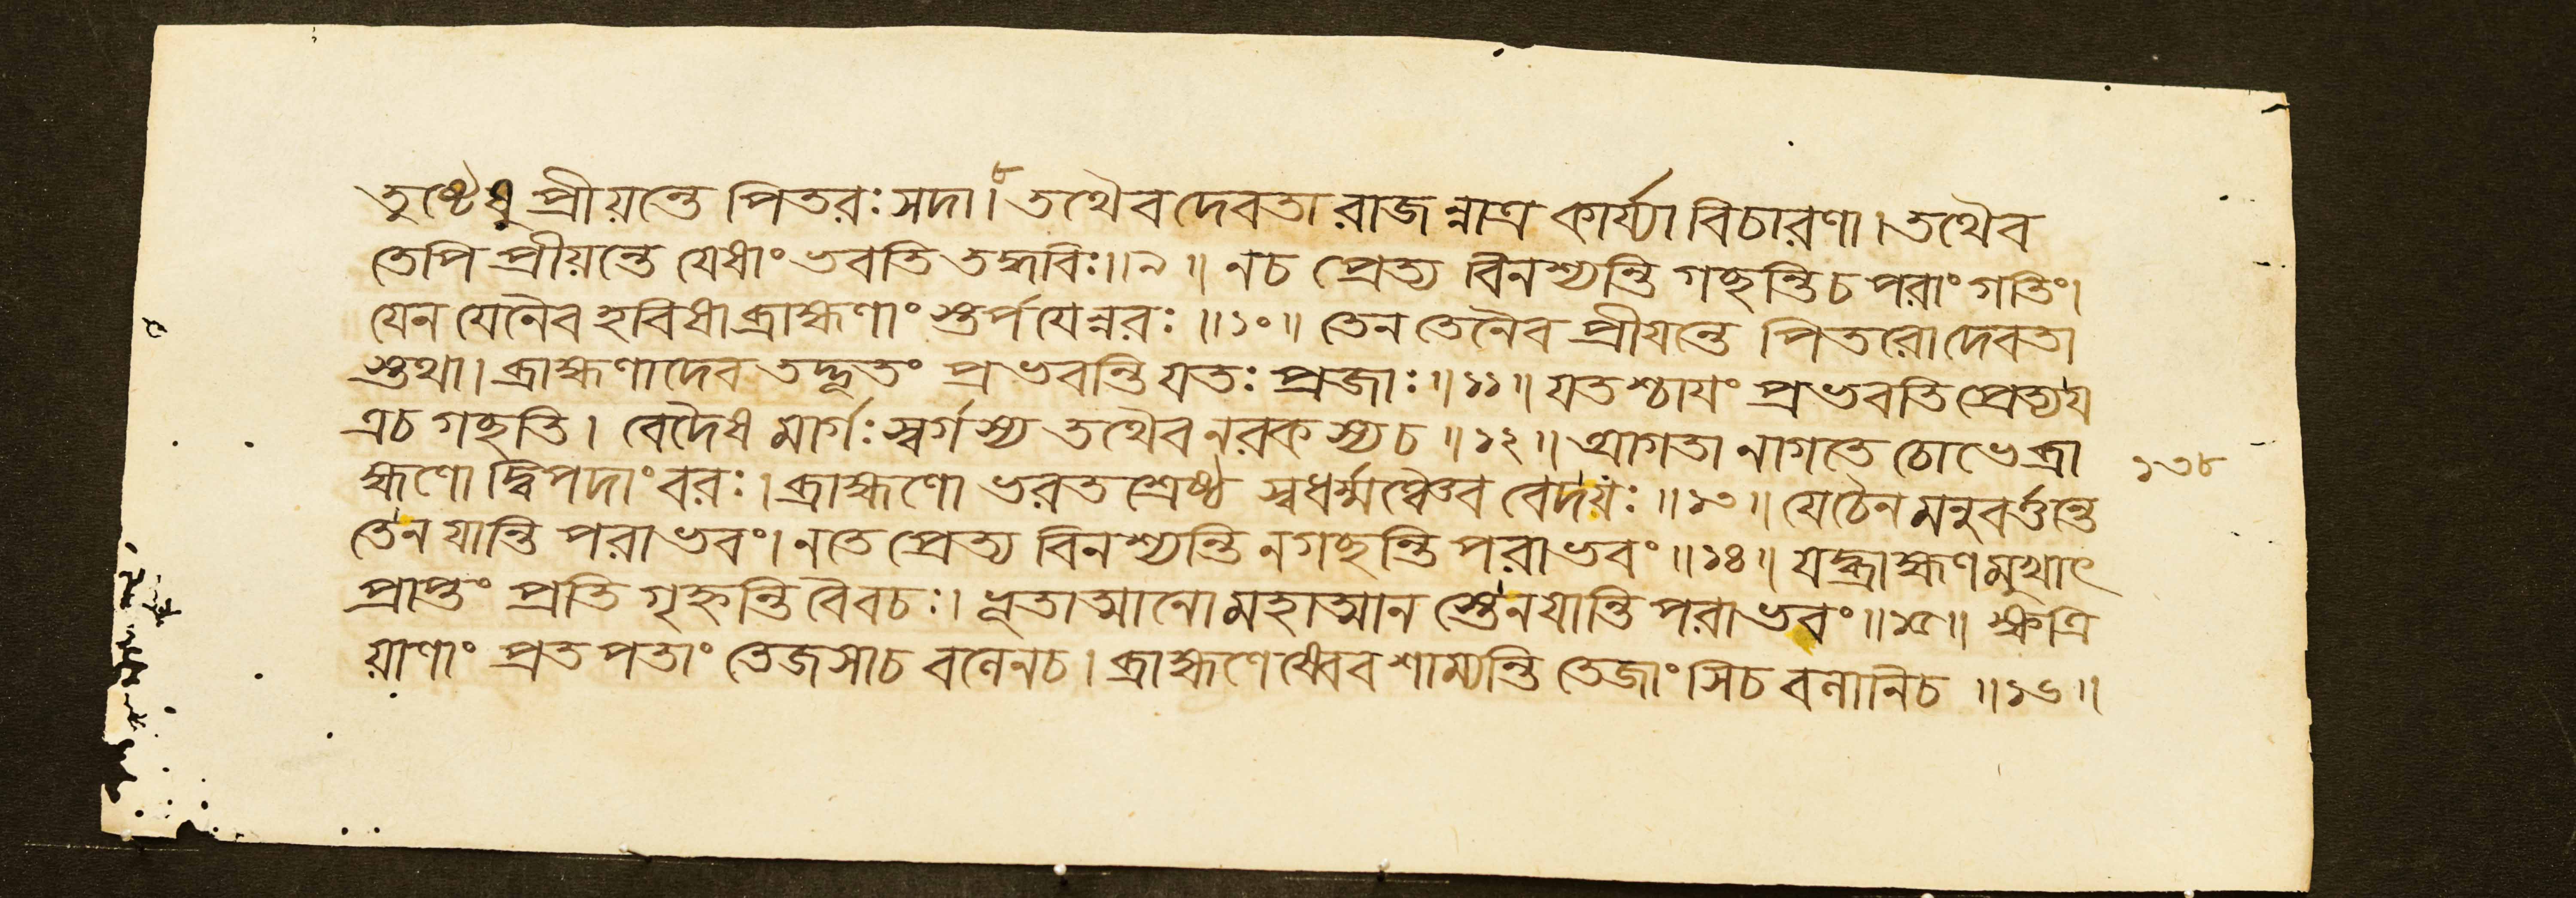 তুষ্টেষু প্রীয়ন্তে পিতরঃ সদা।৮ তথৈব দেবতা রাজ ন্নাত্র কার্য্যা বিচারণা। তথৈব
তেপি প্রীয়ন্তে যেষাং ভবতি তদ্ধবিঃ॥৯॥ নচ প্রেত্য বিনশ্যন্তি গচ্ছন্তি চ পরাং গতিং।
যেন যেনৈব হবিষা ব্রাহ্মণাং স্তর্পযেন্নরঃ॥১০॥ তেন তেনৈব প্রীযন্তে পিতরো দেবতা
স্তথা। ব্রাহ্মণাদেব তদ্ভূতং প্রভবন্তি যতঃ প্রজাঃ॥১১॥ যতশ্চাযং প্রভবতি প্রেত্য য
ত্র চ গচ্ছতি। বেদৈষ মার্গঃ স্বর্গস্য তথৈব নরকস্য চ॥১২॥ আগতা নাগতে চোভে ব্রা ১৩৮
হ্মণো দ্বিপদাং বরঃ। ব্রাহ্মণো ভরতশ্রেষ্ঠ স্বধর্ম্মঞ্চৈব বেদ যঃ॥১৩॥ যে চৈন মনুবর্ত্তন্তে
তে ন যান্তি পরাভবং। ন তে প্রেত্য বিনশ্যন্তি ন গচ্ছন্তি পরাভবং॥১৪॥ যদ্ব্রাহ্মণমুখাৎ
প্রাপ্তং প্রতি গৃহ্নন্তি বৈ বচঃ। ধূতাত্মানো মহাত্মান স্তে ন যান্তি পরাভবং॥১৫॥ ক্ষত্রি
য়াণাং প্রতপতাং তেজসা চ বলেন চ। ব্রাহ্মণেষ্বেব শাম্যন্তি তেজাংসি চ বলানি চ॥১৬॥